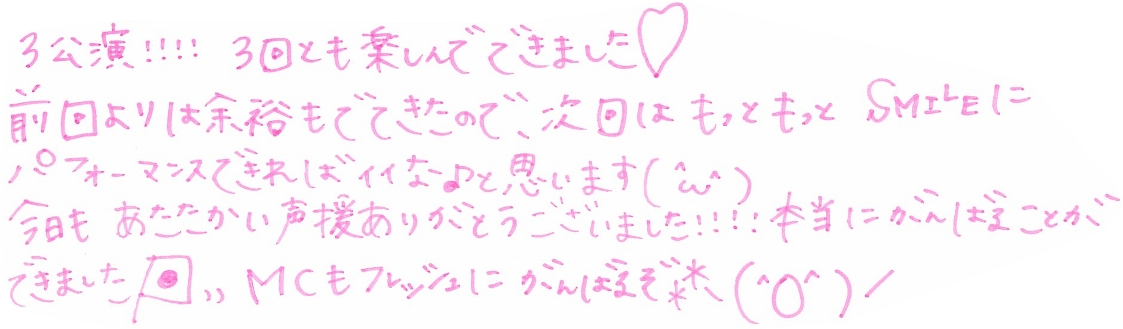 3公演!!!! 3回とも楽しんでできました♡
前回よりは余裕もでてきたので、次回は もっともっと SMILEに
パフォーマンスできればイイな♪と思います(^ω^)
今日も あたたかい声援ありがとうございました!!!! 本当にがんばることが
できました,, MCもフレッシュに がんばるぞ** (^O^)/